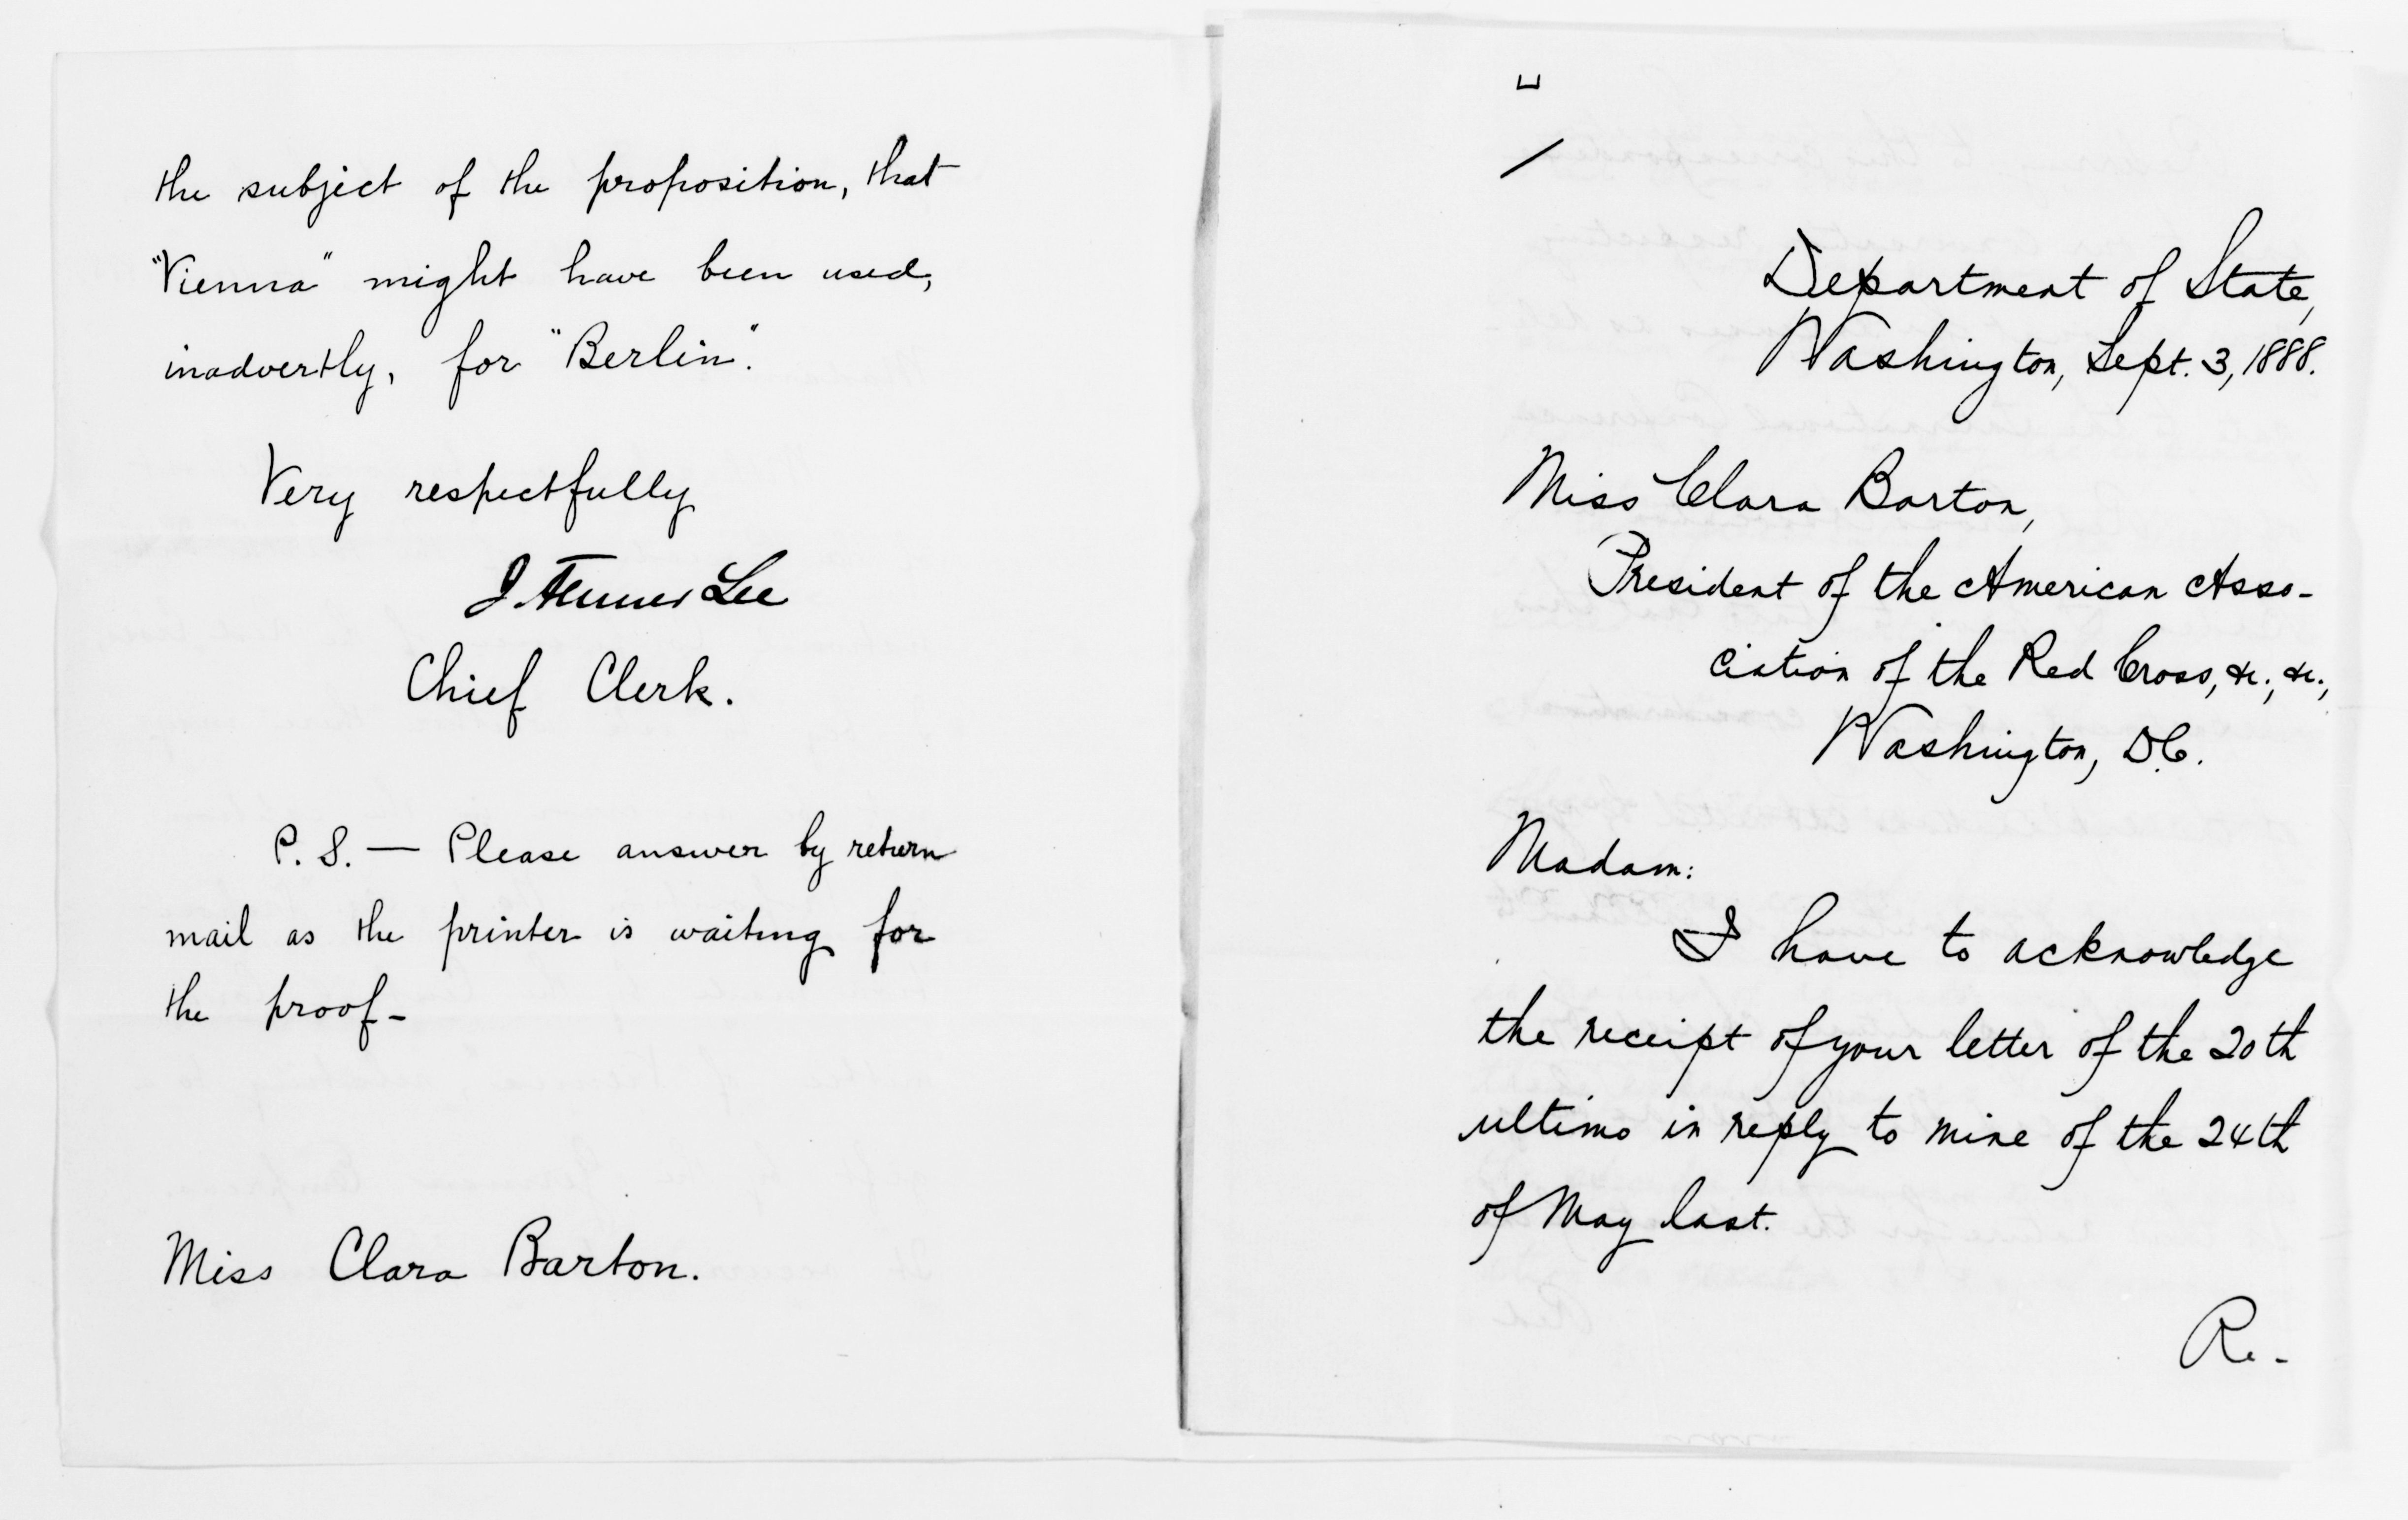 the subject of the proposition, that
"Vienna" might have been used,
inadvertly, for "Berlin".
Very respectfully
J. Fenner Lee
Chief Clerk.
P. S. — Please answer by return
mail as the printer is waiting for
the proof-
Miss Clara Barton.
Department of State,
Washington, Sept. 3, 1888.
Miss Clara Barton,
President of the American Asso-
ciation of the Red Cross, &c., &c.,
Washington, D.C.
Madam:
I have to acknowledge
the receipt of your letter of the 20th
ultimo in reply to mine of the 24th
of May last.
Re-